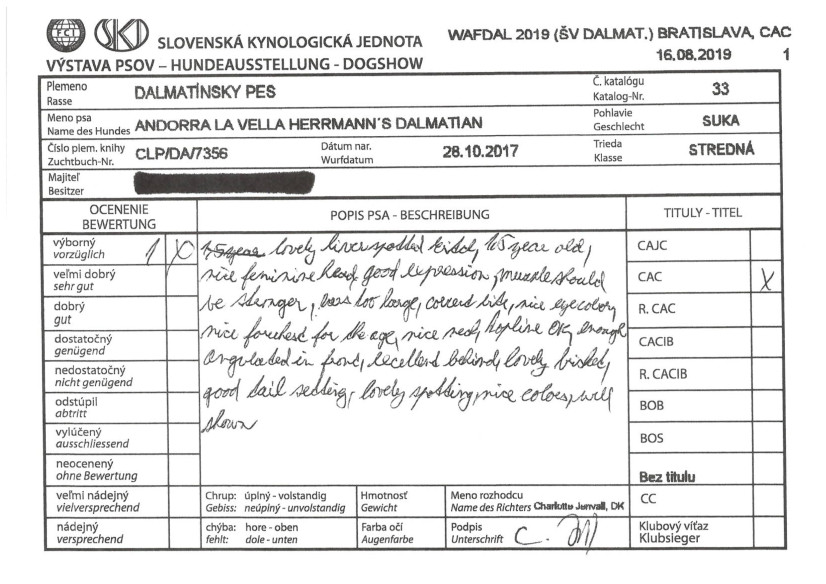 FCI SKJ SLOVENSKÁ KYNOLOGICKÁ JEDNOTA
WAFDAL 2019 (ŠV DALMAT.) BRATISLAVA, CAC
16.08.2019 1
VÝSTAVA PSOV – HUNDEAUSSTELLUNG - DOGSHOW
Plemeno
Rasse
DALMATÍNSKY PES
Č. katalógu
Katalog-Nr.
33
Meno psa
Name des Hundes
ANDORRA LA VELLA HERRMANN'S DALMATIAN
Pohlavie
Geschlecht
SUKA
Číslo plem. knihy
Zuchtbuch-Nr.
CLP/DA/7356
Dátum nar.
Wurfdatum
28.10.2017
Trieda
Klasse
STREDNÁ
Majiteľ
Besitzer
OCENENIE
BEWERTUNG
výborný
vorzüglich
1 X
veľmi dobrý
sehr gut
dobrý
gut
dostatočný
genügend
nedostatočný
nicht genügend
odstúpil
abtritt
vylúčený
ausschliessend
neocenený
ohne Bewertung
veľmi nádejný
vielversprechend
nádejný
versprechend
POPIS PSA - BESCHREIBUNG
lovely liver spotted, 1,5 year old,
nice feminine head, good expression, muzzle should
be stronger, too large, correct bite, nice eyecolour,
nice forechest for the age, nice neck, topline OK, enough
angulated in front, excellent behind, lovely
good tail setting, lovely spotting, nice colour, well
shown
TITULY - TITEL
CAJC
CAC X
R. CAC
CACIB
R. CACIB
BOB
BOS
Bez titulu
CC
Klubový víťaz
Klubsieger
Chrup: úplný - volstandig
Gebiss: neúplný - unvolstandig
Hmotnosť
Gewicht
Meno rozhodcu
Name des Richters Charlotte Jenvall, DK
chýba: hore - oben
fehlt: dole - unten
Farba očí
Augenfarbe
Podpis
Unterschrift